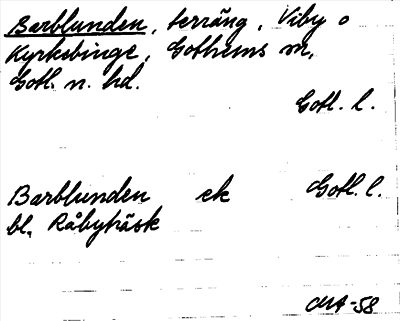 Barblunden, terräng, Viby o
Kyrkebinge, Gothems m,
Gotl. n. hd.
Gotl. l.
Barblunden ek Gotl. l.
bl, Råbyhäsk
MA-58